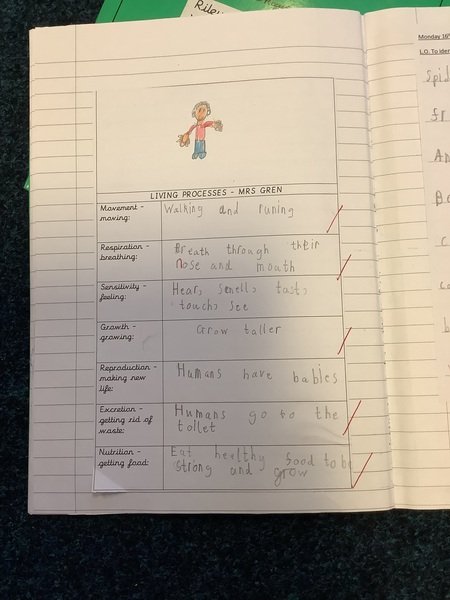 Riley
Monday 16
L.O. To iden
Spid
LIVING PROCESSES - MRS GREN
Movement -
moving:
Walking and runing
Respiration -
breathing:
Breath through their
nose and mouth
Sensitivity -
feeling:
Hear, smell, tast,
touch, see
Growth -
growing:
Grow taller
Reproduction -
making new
life:
Humans have babies
Excretion -
getting rid of
waste:
Humans go to the
toilet
Nutrition -
getting food:
Eat healthy food to be
strong and grow